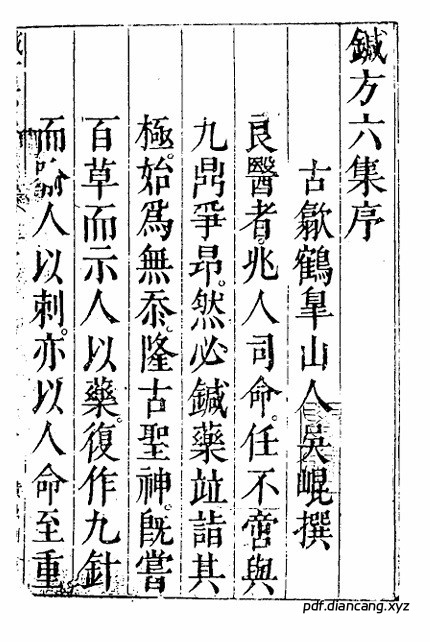 鍼方六集序
古歙鶴臯山人吳崐撰
良醫者。兆人司命。任不啻與
九鼎爭昂。然必鍼藥竝詣其
極。始爲無忝。隆古聖神。旣嘗
百草而示人以藥。復作九針
而 人以刺。亦以人命至重
pdf.diancang.xyz